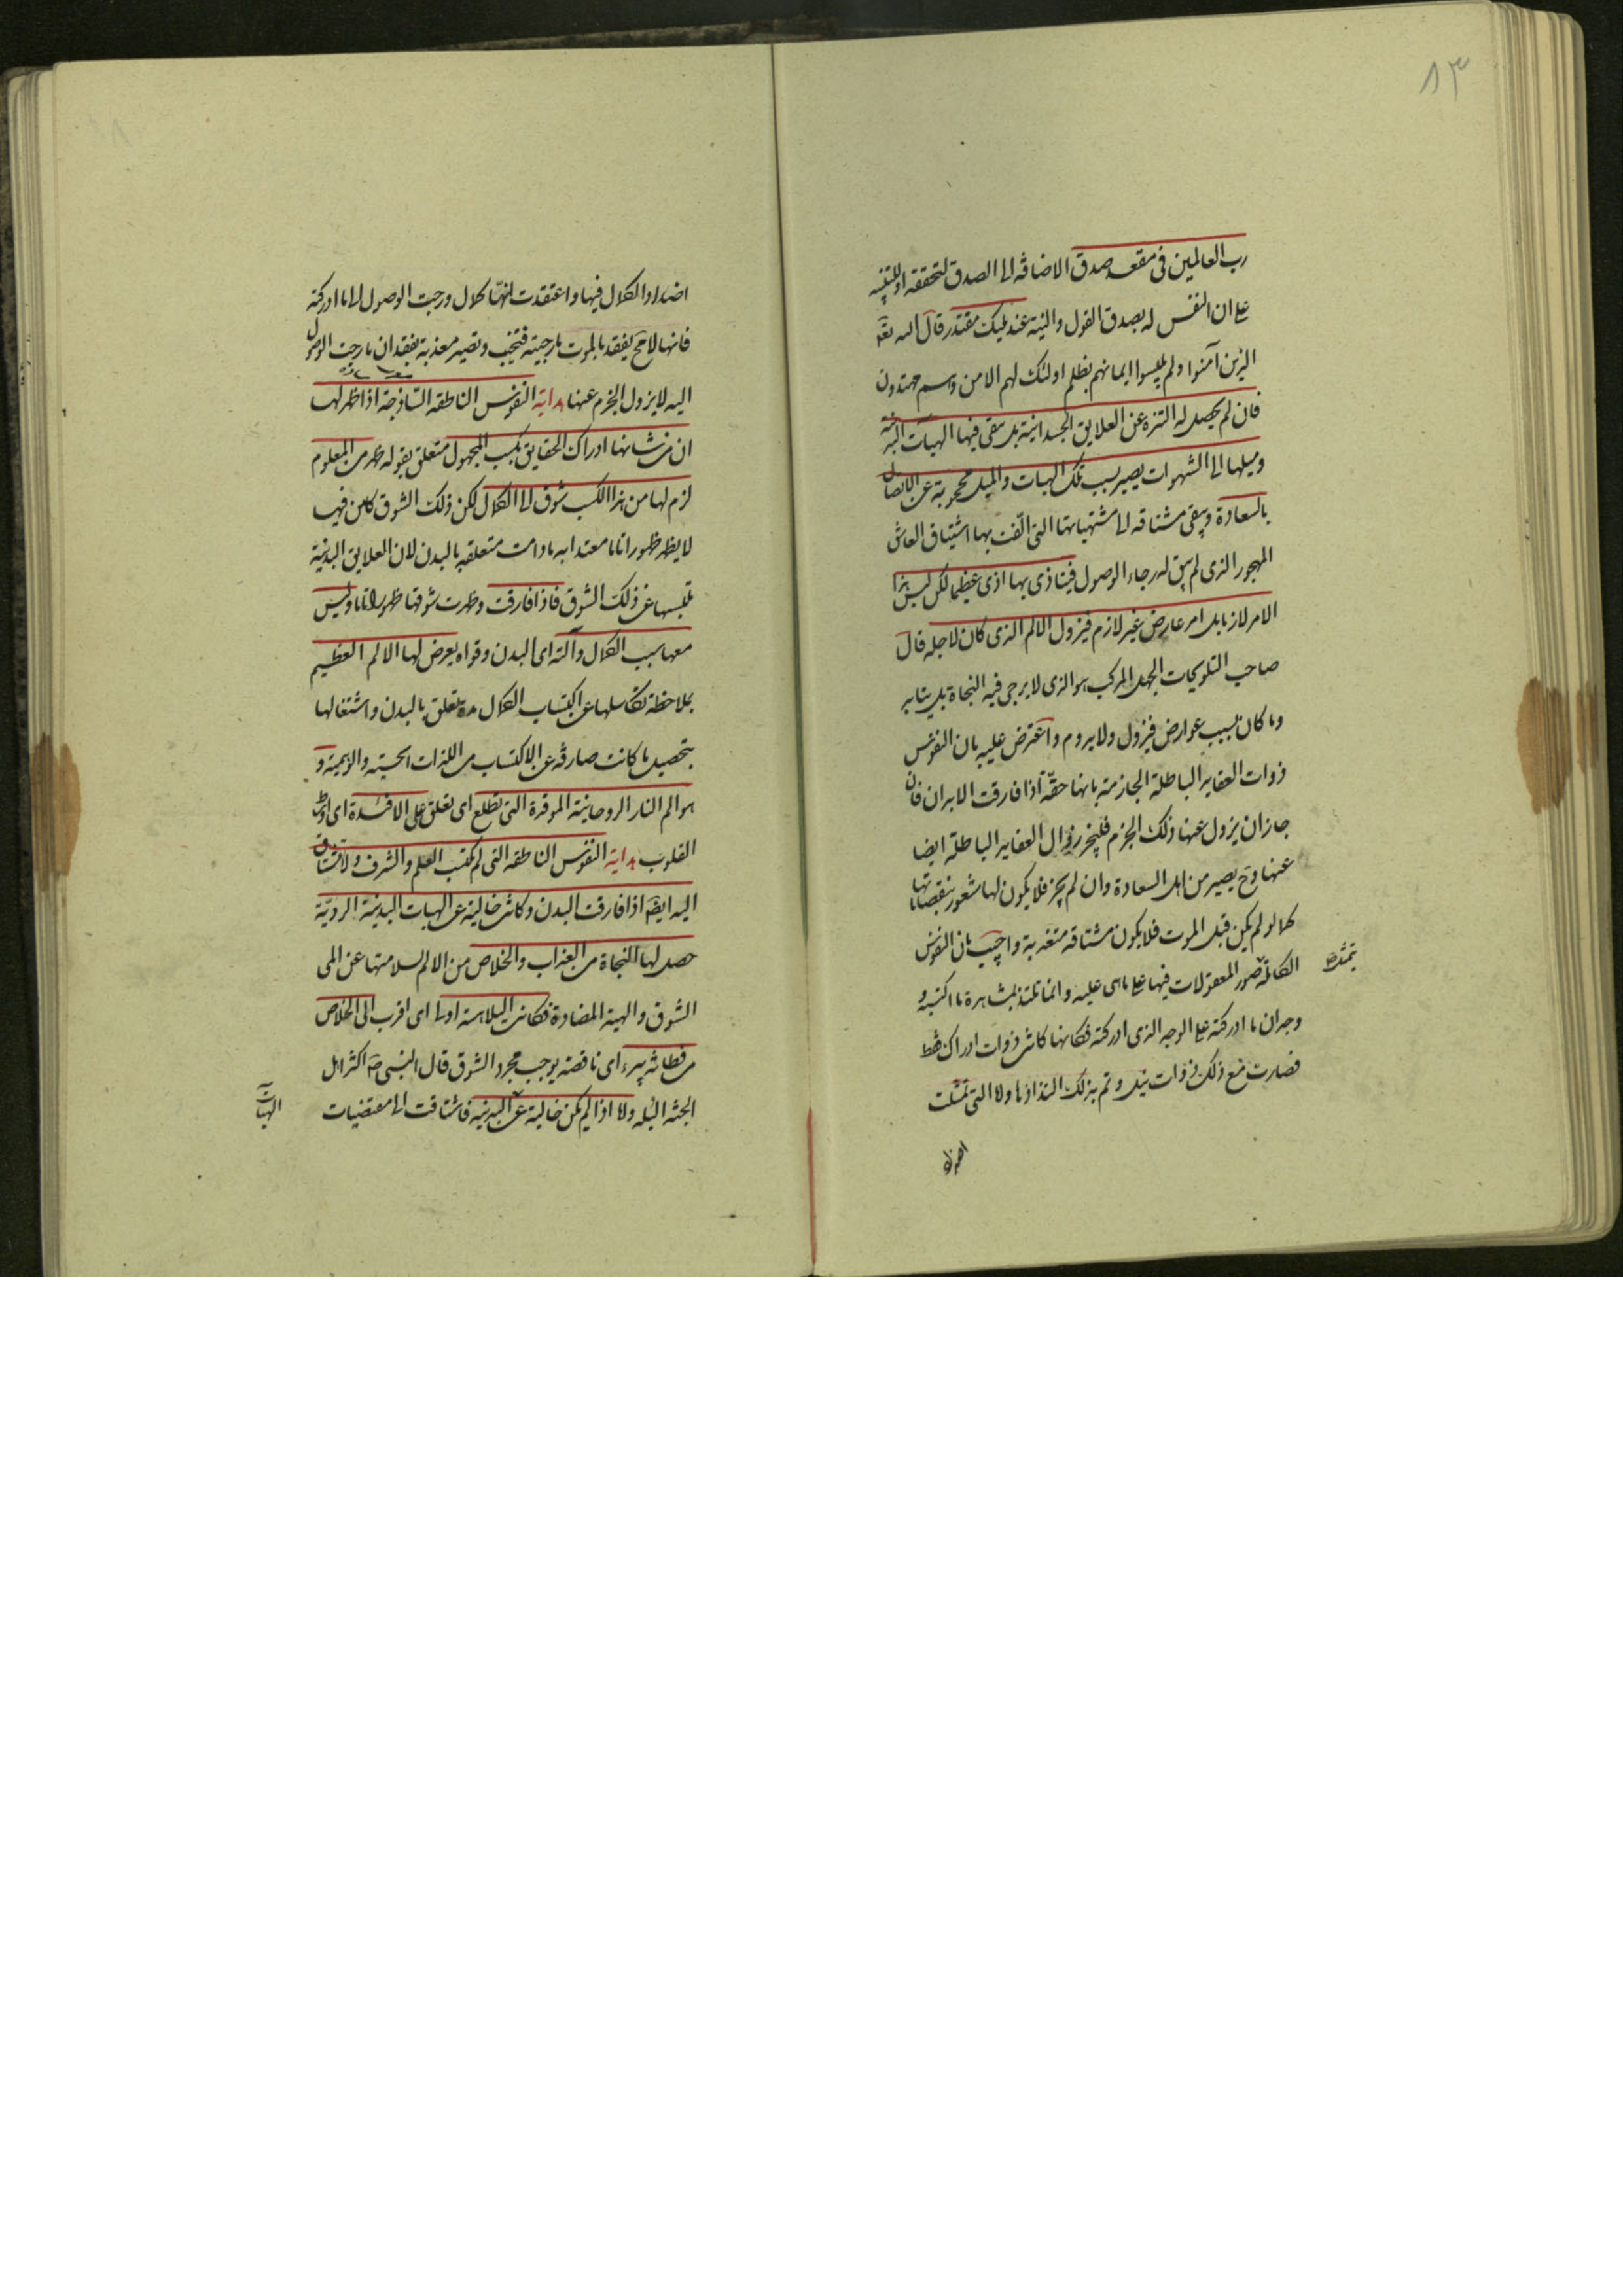 ٨٣
رب العالمين فى مقعد صدق الاضافة الى الصدق لتحققه او للتنبيه
على ان النفس له بصدق القول والنية عند مليك مقتدر قال الله تعالى
الذين آمنوا ولم يلبسوا ايمانهم بظلم اولئك لهم الامن وهم مهتدون
فان لم يحصل له التنزه عن العلايق الجسدانية بل يبقى فيها الهيآت البدنية
وميلها الى الشهوات يصير بسبب تلك الهيات والميل محجوبة عن الاتصال
بالسعادة ويبقى مشتاقه الى مشتهياتها التى الفت بها اشتياق العاشق
المهجور الذى لم يبق له رجاء الوصول فيتاذى بها اذى عظيما لكن ليس هذا
الامر لازما بل امر عارض غير لازم فيزول الالم الذى كان لاجله قال
صاحب التلويحات الجهل المركب هو الذى لا يرجى فيه النجاة بل يتابد
وما كان بسبب عوارض فيزول ولا يدوم واعترض عليه بان النفوس
ذوات العقايد الباطلة الجازمة بانها حقّة اذا فارقت الابدان فان
جاز ان يزول عنها ذلك الجزم فليجز زوال العقايد الباطلة ايضا
عنها وح يصير من اهل السعادة وان لم يجز فلا يكون لها شعور بنقصاناتها
كما لو لم يكن قبل الموت فلا يكون مشتاقه متعذبة واجيب بان النفوس
الكاملة صور المعقولات فيها على ما هى عليه وانما تلتذ بمشاهدة ما اكتسبه و
وجدان ما ادركته على الوجه الذى ادركته فكانها كانت ذوات ادراك فقط
فصارت مع ذلك ذوات نيل وتم بذلك التذاذها ولا التى تمثلت
اضداد
اضداد الكمال فيها واعتقدت انها كمال ورجت الوصول الى ما ادركته
فانها لا مح يفقد بالموت ما رجيته فتخيب وتصير معذبة بفقدان ما رجت الوصول
اليه لا يزول الجزم عنها هداية النفوس الناطقه الساذجة اذا ظهر لها
ان من شانها ادراك الحقايق بكسب المجهول متعلق بقوله ظهر من المعلوم
لزم لها من هذا الكسب شوق الى الكمال لكن ذلك الشوق كامن فيها
لا يظهر ظهورا تاما معتدا به ما دامت متعلقه بالبدن لان العلايق البدنية
تلبسها عن ذلك الشوق فاذا فارقت وظهرت شوقها ظهورا تاما وليس
معها سبب الكمال وآلته اى البدن وقواه يعرض لها الالم العظيم
بملاحظة تكاسلها عن اكتساب الكمال مدة تعلق بالبدن واشتغالها
بتحصيل ما كانت صارفة عن الاكتساب من اللذات الحسية والوهمية و
هو الم النار الروحانية الموقدة التى تطلع اى تعلق على الافئدة اى
القلوب هداية النفوس الناطقه التى لم يكتسب العلم والشرف ولا تشتاق
اليه ايضا اذا فارقت البدن وكانت خالية عن الهيات البدنية الردية
حصل لها النجاة من العذاب والخلاص من الالم لسلامتها عن المى
الشوق والهيه المضادة فكانت البلاهة ادنى اى اقرب الى الخلاص
من فطانة بتراء اى ناقصة يوجب مجرد الشوق قال النبى ص اكثر اهل
الجنة البله ولا اذا لم يكن خالية عن البدنية فاشتاقت الى مقتضيات
الهيات